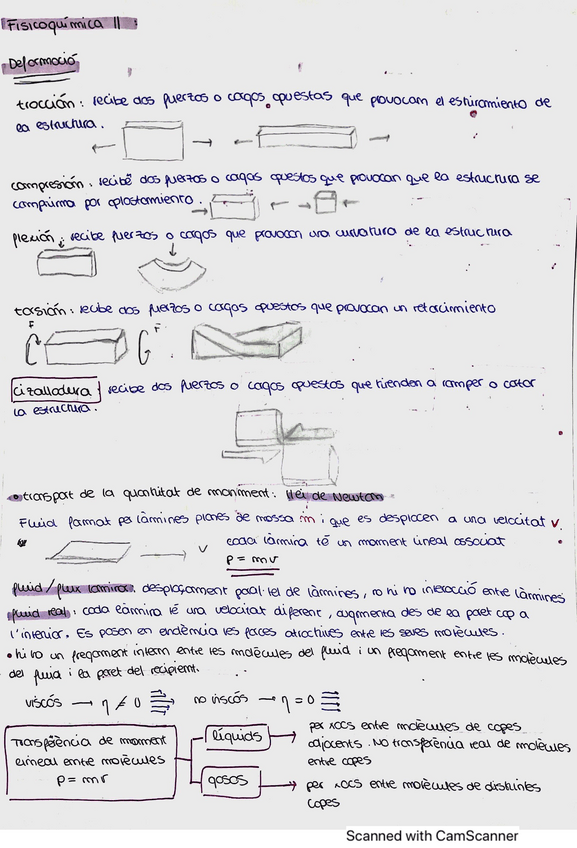 Fisicoquímica II
Deformació
tracción: recibe dos fuerzas o cargas opuestas que provocam el estiramiento de
la estructura.
compresión: recibe dos fuerzas o cargas opuestas que provocan que la estructura se
comprima por aplastamiento.
flexión: recibe fuerzas o cargas que provocan una curvatura de la estructura
torsión: recibe dos fuerzas o cargas opuestas que provocan un retorcimiento
F F
Cizalladura: recibe dos fuerzas o cargas opuestas que tienden a romper o cortar
la estructura.
• transport de la quantitat de moviment: llei de Newton
Fluid format per làmines planes de massa m i que es desplacen a una velocitat v.
v cada làmina té un moment lineal associat
p = mv
fluid/flux laminar: desplaçament paral·lel de làmines, no hi ha interacció entre làmines
fluid real: cada làmina té una velocitat diferent, augmenta des de la paret cap a
l'interior. Es posen en evidència les forces atractives entre les seves molècules.
• hi ha un fregament intern entre les molècules del fluid i un fregament entre les molècules
del fluid i la paret del recipient.
viscós → η ≠ 0 no viscós → η = 0
Transferència de moment
lineal entre molècules
p = mv
líquids → per xocs entre molècules de capes
adjacents. No transferència real de molècules
entre capes
gasos → per xocs entre molècules de distintes
capes
Scanned with CamScanner